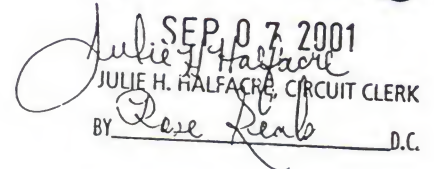 SEP 07 2001
Julie H Halfacre
JULIE H. HALFACRE, CIRCUIT CLERK
BY Rose D.C.